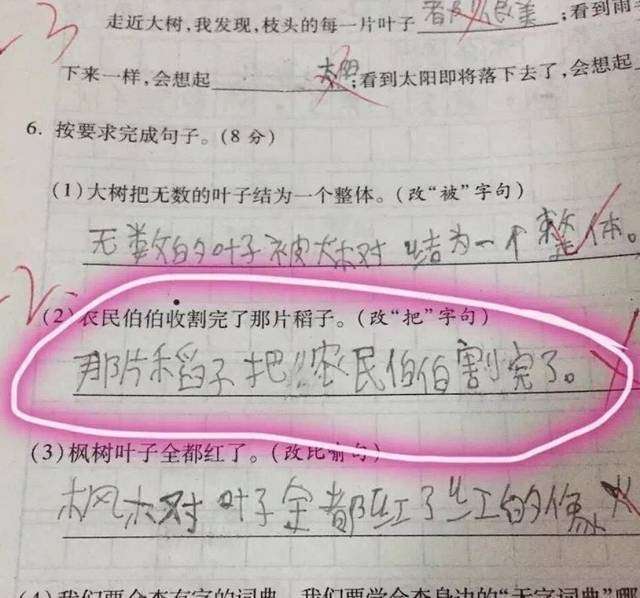 走近大树,我发现,枝头的每一片叶子都及从良美;看到雨
下来一样,会想起;看到太阳即将落下去了,会想起
6. 按要求完成句子。(8分)
(1)大树把无数的叶子结为一个整体。(改“被”字句)
无数的叶子被大树结为一个整体。
(2)农民伯伯收割完了那片稻子。(改“把”字句)
那片稻子把农民伯伯割完了。
(3)枫树叶子全都红了。(改比喻句)
枫树叶子全都红了红的像火
(4)我们要会查有字的词典,我们要学会查身边的“无字词典”哪